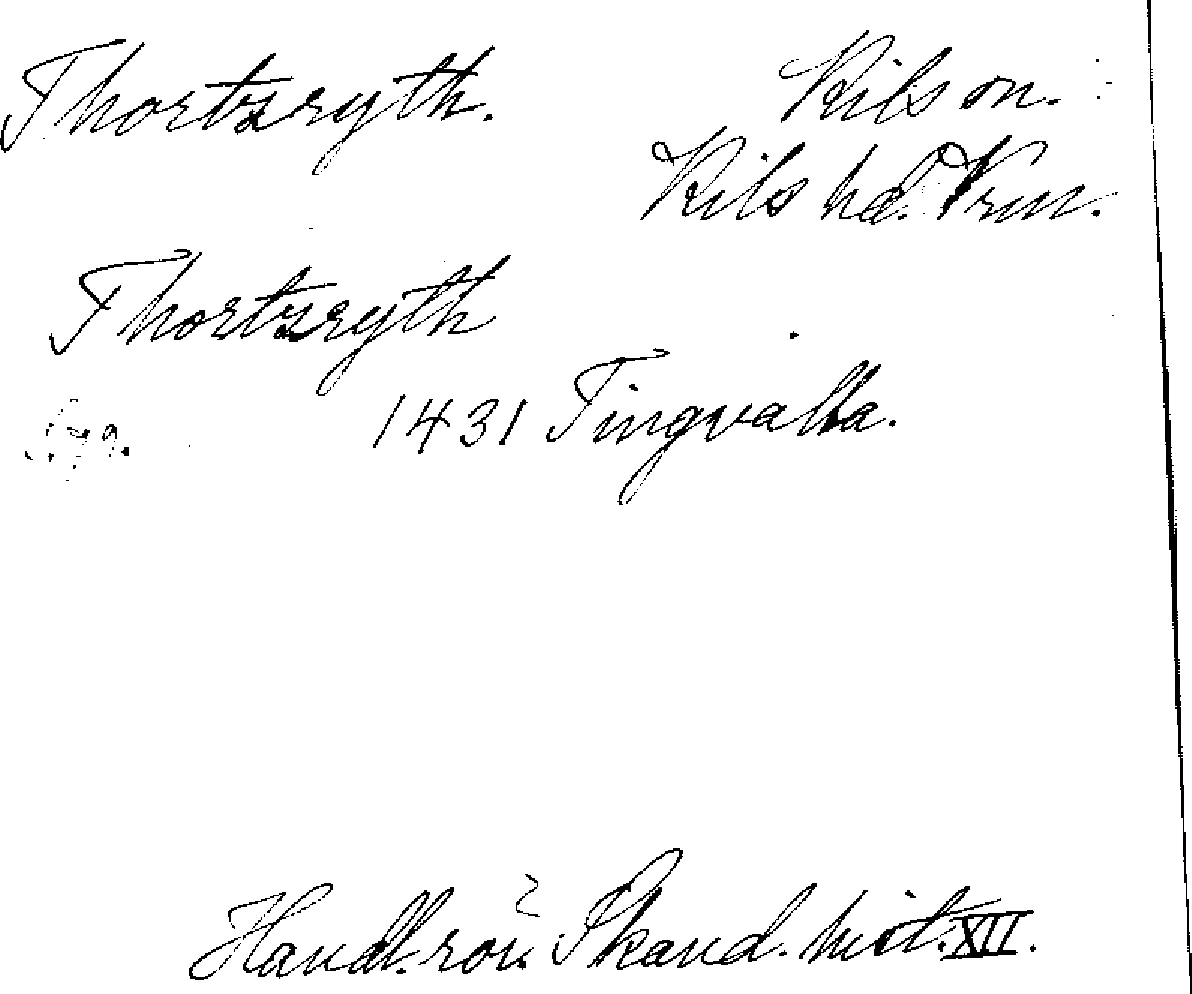 Thortzryth. Kils sn.
Kils hd. Vrm.
Thortzryth
1431 Tingvalla.
Handl. rör. Skand. hist. XII.